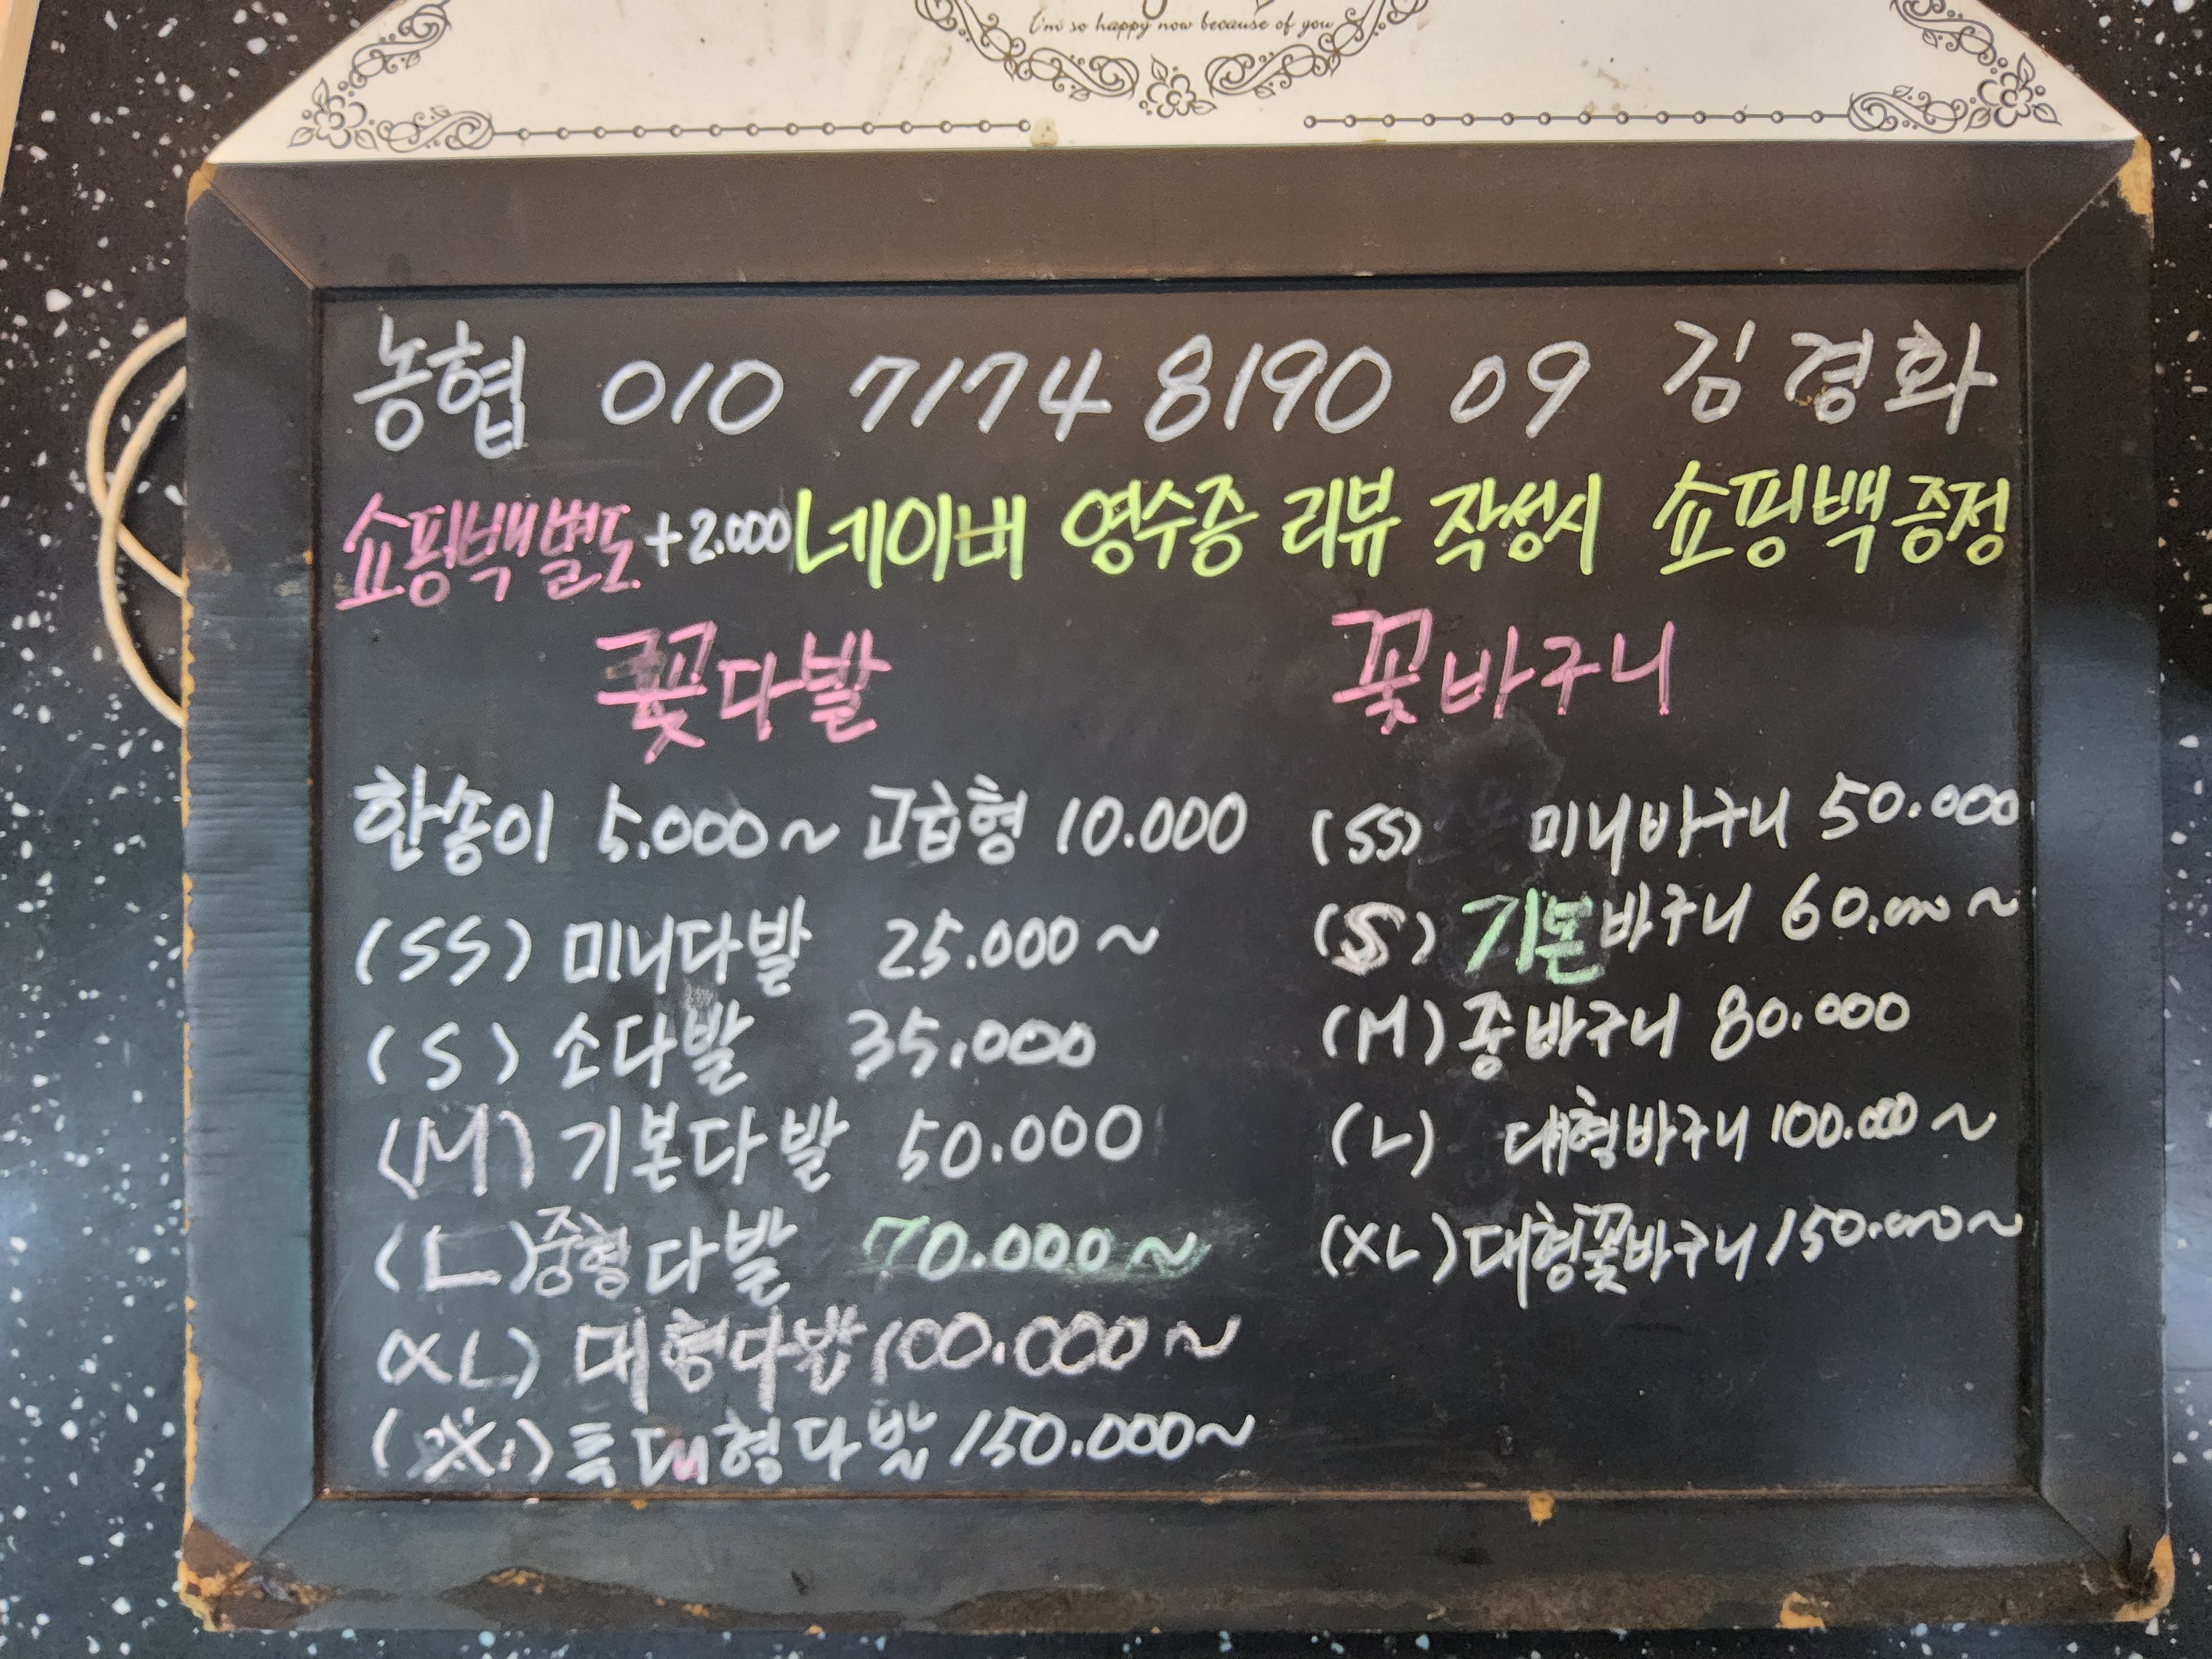 I'm so happy now because of you
농협 010 7174 8190 09 김경화
쇼핑백별도 +2.000 네이버 영수증 리뷰 작성시 쇼핑백증정
꽃다발
한송이 5.000~ 고급형 10.000
(SS) 미니다발 25.000~
(S) 소다발 35.000
(M) 기본다발 50.000
(L) 중형다발 70.000~
(XL) 대형다발 100.000~
특대형다발 150.000~
꽃바구니
(SS) 미니바구니 50.000
(S) 기본바구니 60.000~
(M) 중바구니 80.000
(L) 대형바구니 100.000~
(XL) 대형꽃바구니 150.000~